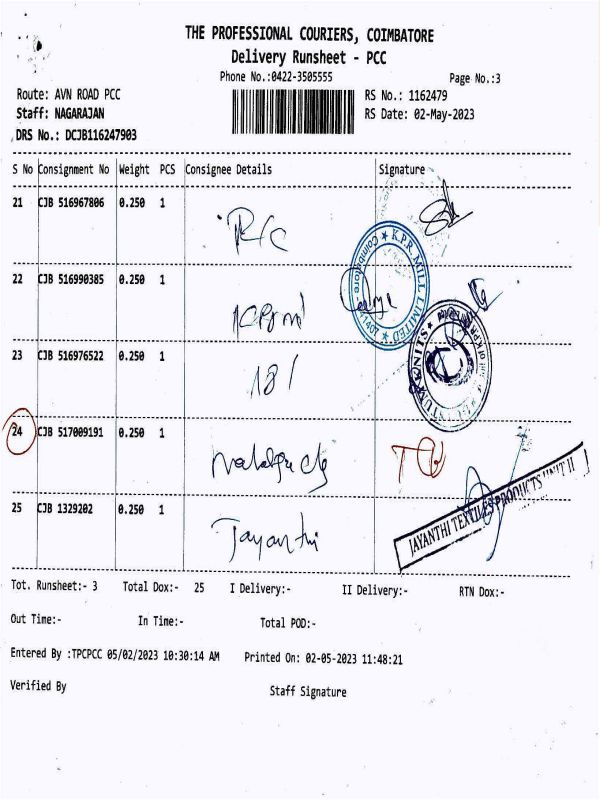 THE PROFESSIONAL COURIERS, COIMBATORE
Delivery Runsheet - PCC
Phone No.:0422-3505555
Page No.:3
Route: AVN ROAD PCC
RS No.: 1162479
Staff: NAGARAJAN
RS Date: 02-May-2023
DRS No.: DCJB116247903
S No Consignment No Weight PCS Consignee Details Signature
21 CJB 516967806 0.250 1
22 CJB 516990385 0.250 1
K.P.R. MILL LIMITED
Coimbatore
23 CJB 516976522 0.250 1
181
24 CJB 517009191 0.250 1
25 CJB 1329202 0.250 1
Jayanthi
JAYANTHI TEXTILES PRODUCTS UNIT II
Tot. Runsheet:- 3 Total Dox:- 25 I Delivery:- II Delivery:- RTN Dox:-
Out Time:- In Time:- Total POD:-
Entered By :TPCPCC 05/02/2023 10:30:14 AM Printed On: 02-05-2023 11:48:21
Verified By Staff Signature